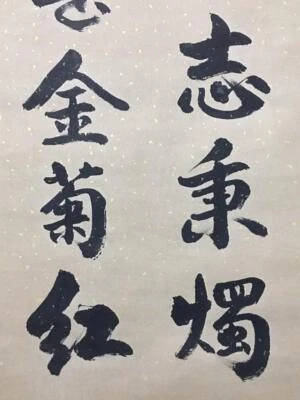 志秉燭
金菊红